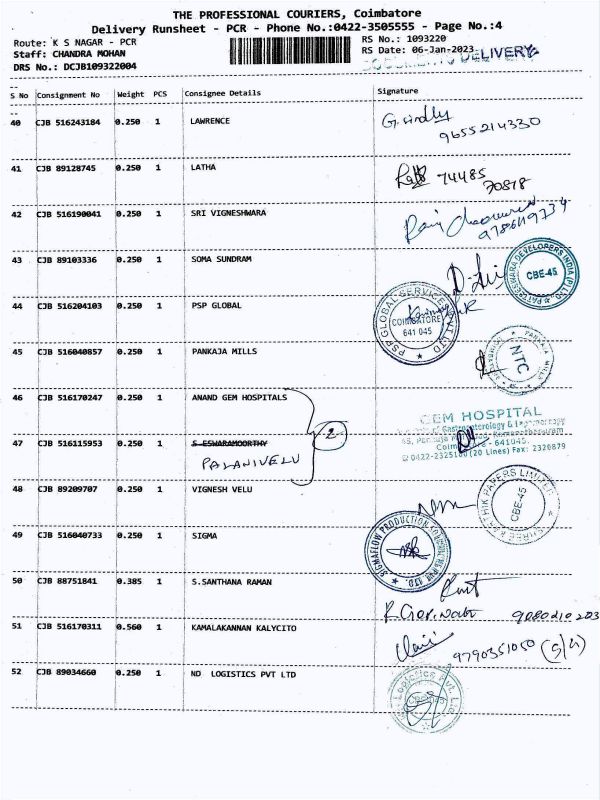 THE PROFESSIONAL COURIERS, Coimbatore
Delivery Runsheet - PCR - Phone No.:0422-3505555 - Page No.:4
Route: K S NAGAR - PCR
RS No.: 1093220
Staff: CHANDRA MOHAN
RS Date: 06-Jan-2023
DELIVERY
DRS No.: DCJB109322004
S No Consignment No Weight PCS Consignee Details Signature
40 CJB 516243184 0.250 1 LAWRENCE
9655214330
41 CJB 89128745 0.250 1 LATHA
74485
70878
42 CJB 516190041 0.250 1 SRI VIGNESHWARA
43 CJB 89103336 0.250 1 SOMA SUNDRAM
PATTEESWARA DEVELOPERS INDIA (P) LTD
CBE-45
44 CJB 516204103 0.250 1 PSP GLOBAL
PSP GLOBAL SERVICES PVT LTD
COIMBATORE
641 045
45 CJB 516040857 0.250 1 PANKAJA MILLS
PANKAJA MILLS
NTC
46 CJB 516170247 0.250 1 ANAND GEM HOSPITALS
GEM HOSPITAL
of Gastroenterology &
47 CJB 516115953 0.250 1 S ESWARAMOORTHY
2
45, Ramanathapuram
641045.
PALANIVELU
0422-2325100 (20 Lines) Fax: 2320879
48 CJB 89209707 0.250 1 VIGNESH VELU
PAPERS LIMITED
CBE-45
49 CJB 516040733 0.250 1 SIGMA
SIGMAFLOW PRODUCTION PVT. LTD.
50 CJB 88751841 0.385 1 S.SANTHANA RAMAN
51 CJB 516170311 0.560 1 KAMALAKANNAN KALYCITO
9790351050 (S/G)
52 CJB 89034660 0.250 1 ND LOGISTICS PVT LTD
Logistics Pvt. Ltd.